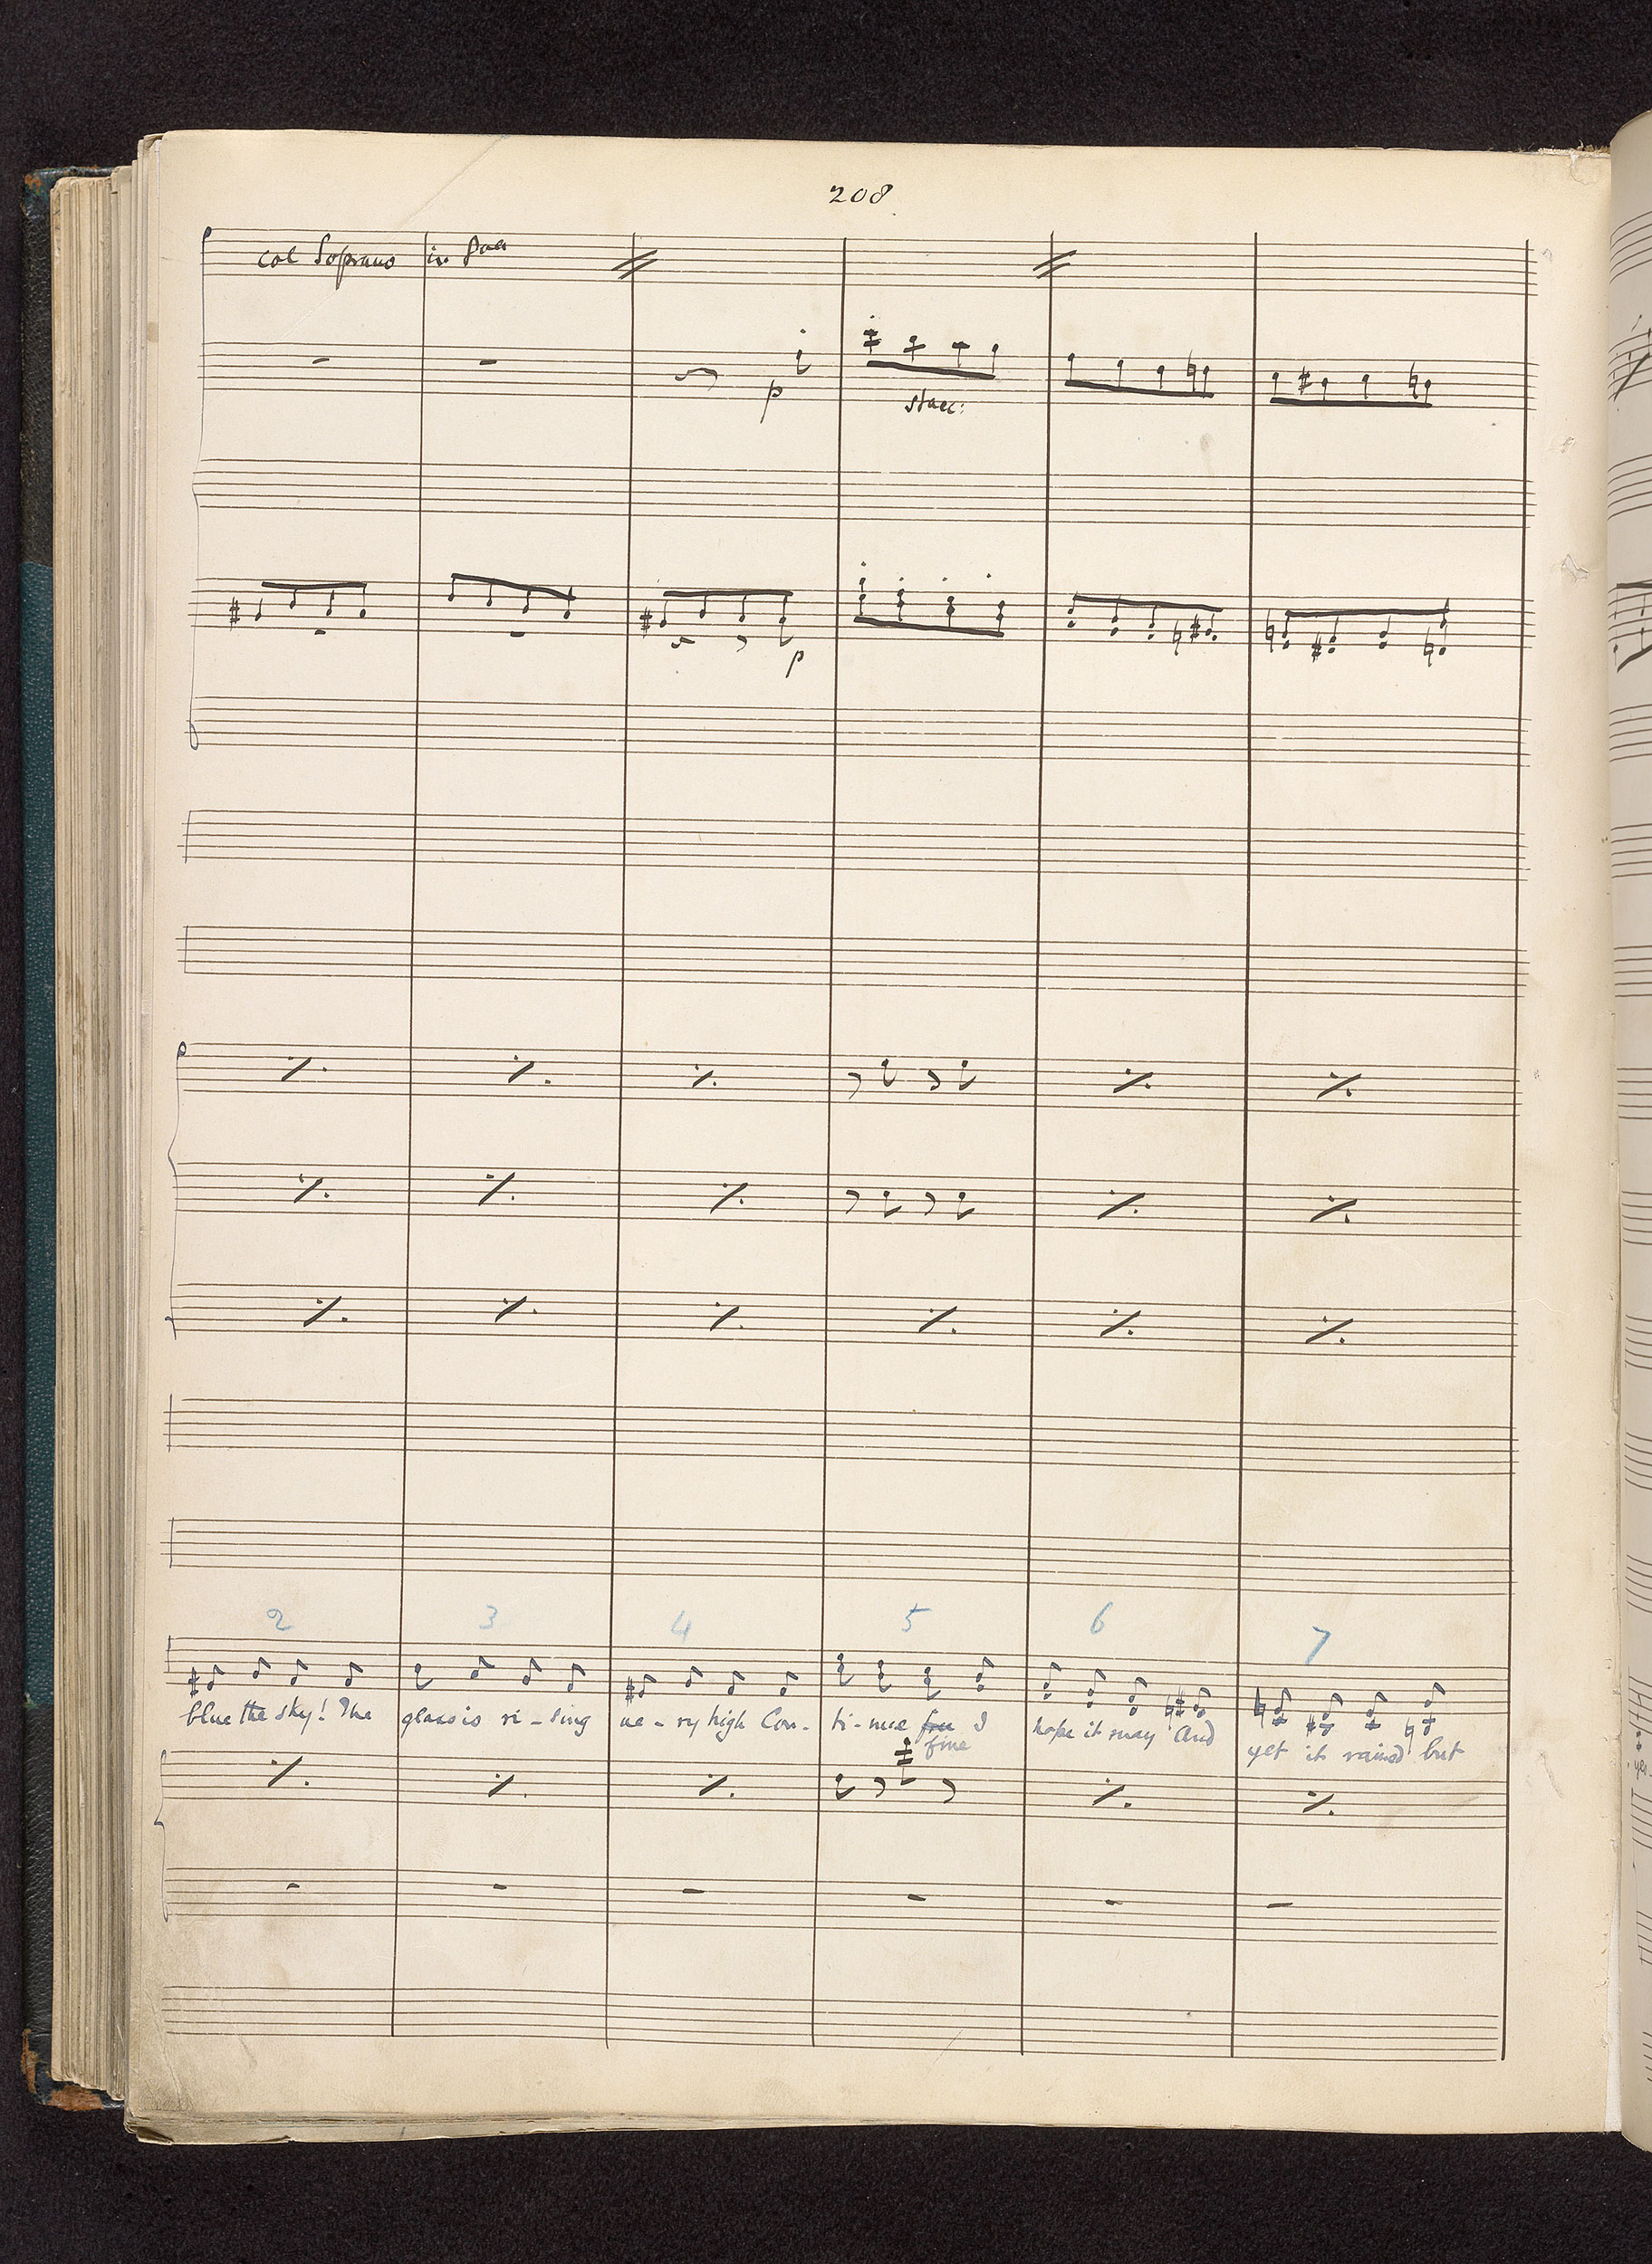 208
col Soprano in 8va
p
stacc:
p
2 3 4 5 6 7
blue the sky! The glass is ri-sing ve-ry high Con-ti-nue fine I hope it may And yet it rained but
fine